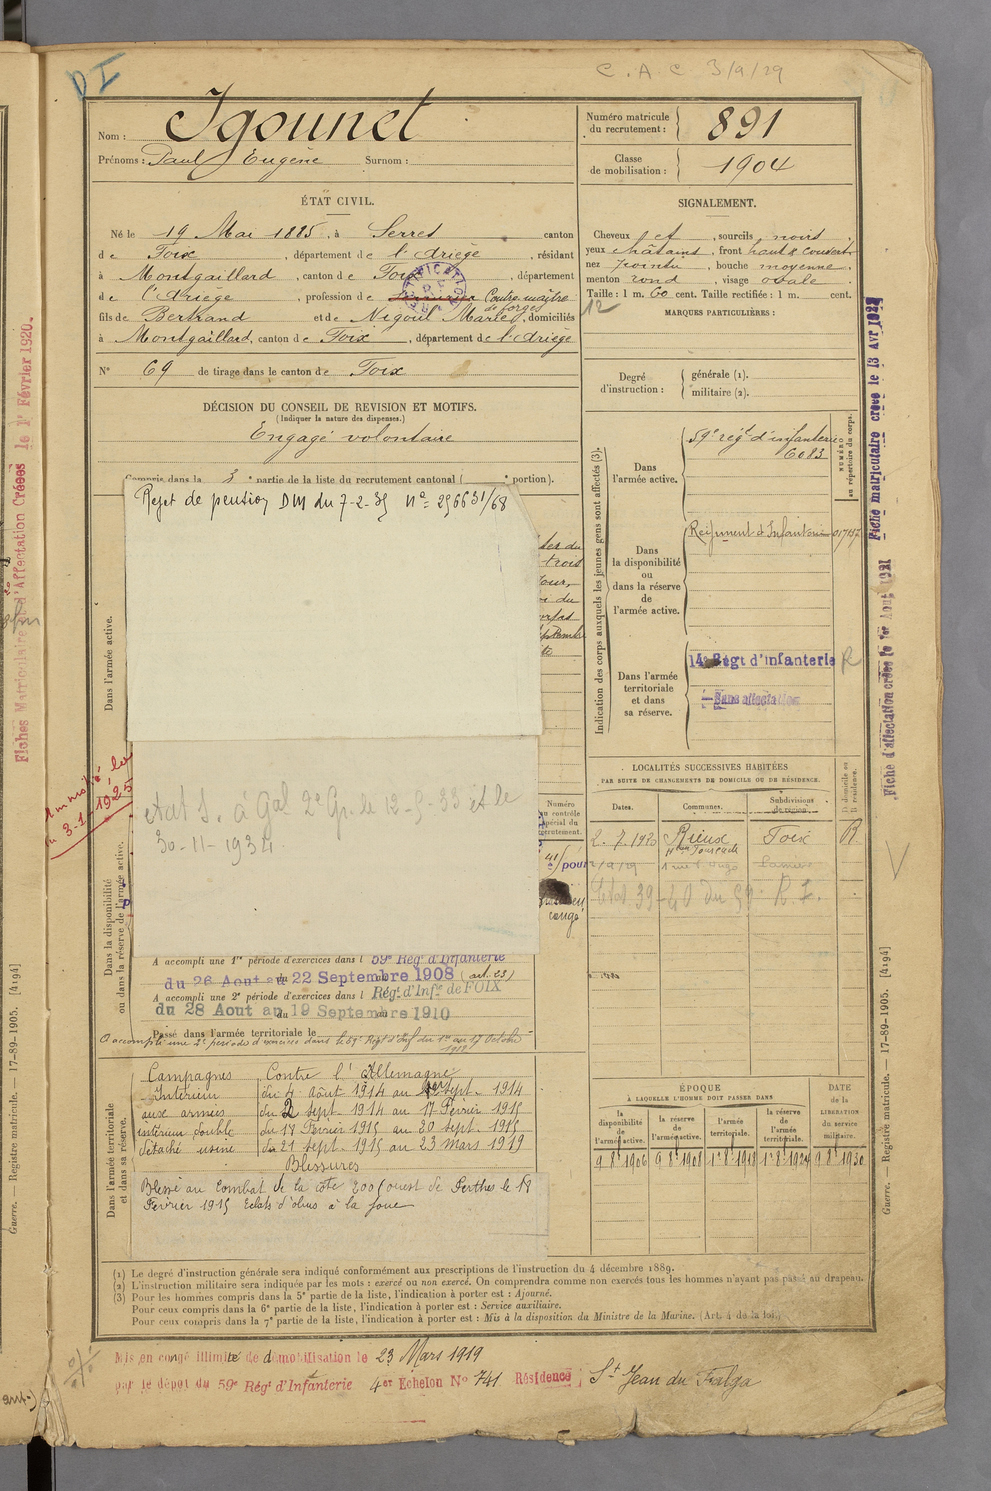 C.A.C 3/9/29
DI
Nom : Igounet
Prénoms : Paul Eugène Surnom :
Numéro matricule du recrutement : 891
Classe de mobilisation : 1904
ÉTAT CIVIL.
Né le 19 Mai 1885, à Serres canton
de Foix, département de l'Ariège, résidant
à Montgaillard, canton de Foix, département
de l'Ariège, profession de Contre maître de forges
fils de Bertrand et de Nigoul Marie, domiciliés
à Montgaillard, canton de Foix, département de l'Ariège
N° 69 de tirage dans le canton de Foix
SIGNALEMENT.
Cheveux et, sourcils noirs
yeux châtains, front haut & couvert
nez pointu, bouche moyenne
menton rond, visage ovale
Taille : 1 m. 60 cent. Taille rectifiée : 1 m. cent.
MARQUES PARTICULIÈRES :
Degré d'instruction : générale (1).
militaire (2).
DÉCISION DU CONSEIL DE REVISION ET MOTIFS.
(Indiquer la nature des dispenses.)
Engagé volontaire
Compris dans la 3e partie de la liste du recrutement cantonal ( portion).
Rejet de pension DM du 7-2-35 N° 256631/68
Dans l'armée active.
Etat S. à Gal 2e Gr. le 12-9-33 et le
30-11-1934
Dans la disponibilité ou dans la réserve de l'armée active.
A accompli une 1re période d'exercices dans l 59e Régt d'Infanterie
du 26 Aout au 22 Septembre 1908 (art. 23)
A accompli une 2e période d'exercices dans l Régt d'Infie de FOIX
du 28 Aout au 19 Septembre 1910
Passé dans l'armée territoriale le
A accompli une 2e période d'exercices dans le 59e Régt d'Inf du 1er au 17 Octobre
Dans l'armée territoriale et dans sa réserve.
Campagnes Contre l'Allemagne
Intérieur du 4 Août 1914 au 1er Sept. 1914
aux armées du 2 sept. 1914 au 17 Février 1915
intérieur double du 17 Février 1915 au 20 sept. 1915
détaché usine du 21 sept. 1915 au 23 Mars 1919
Blessures
Blessé au combat de la côte 200 (ouest de Perthes le 18
Février 1915 Eclats d'obus à la joue
Indication des corps auxquels les jeunes gens sont affectés (3).
NUMÉRO au répertoire du corps.
Dans l'armée active.
59e régt d'infanterie
6083
Dans la disponibilité ou dans la réserve de l'armée active.
Régiment d'Infanterie
Dans l'armée territoriale et dans sa réserve.
14e Régt d'infanterie R
Sans affectation
LOCALITÉS SUCCESSIVES HABITÉES
PAR SUITE DE CHANGEMENTS DE DOMICILE OU DE RÉSIDENCE.
Dates. Communes. Subdivisions de région. D domicile ou R résidence.
2.7.1920 Rieux Foix R.
Etat 39-40 du 59e R.I.
Numéro au contrôle spécial du recrutement.
congé
ÉPOQUE
À LAQUELLE L'HOMME DOIT PASSER DANS
la disponibilité de l'armée active. la réserve de l'armée active. l'armée territoriale. la réserve de l'armée territoriale.
DATE de la LIBÉRATION du service militaire.
9 8bre 1906 9 8bre 1908 1er 8bre 1918 1er 8bre 1924 9 8bre 1930
(1) Le degré d'instruction générale sera indiqué conformément aux prescriptions de l'instruction du 4 décembre 1889.
(2) L'instruction militaire sera indiquée par les mots : exercé ou non exercé. On comprendra comme non exercés tous les hommes n'ayant pas passé au drapeau.
(3) Pour les hommes compris dans la 5e partie de la liste, l'indication à porter est : Ajourné.
Pour ceux compris dans la 6e partie de la liste, l'indication à porter est : Service auxiliaire.
Pour ceux compris dans la 7e partie de la liste, l'indication à porter est : Mis à la disposition du Ministre de la Marine. (Art. 4 de la loi.)
Mis en congé illimité de démobilisation le 23 Mars 1919
par le dépôt du 59e Régt d'Infanterie 4e Echelon N° 741 Résidence St Jean du Falga
Fiches Matriculaire et d'Affectation Créées le 1er Février 1920.
Fiche matriculaire créée le 13 Avr 1922
Fiche d'affectation créée le 1er Aout 1921
Guerre. — Registre matricule. — 17-89-1905. [4194]
Guerre. — Registre matricule. — 17-89-1905. [4194]